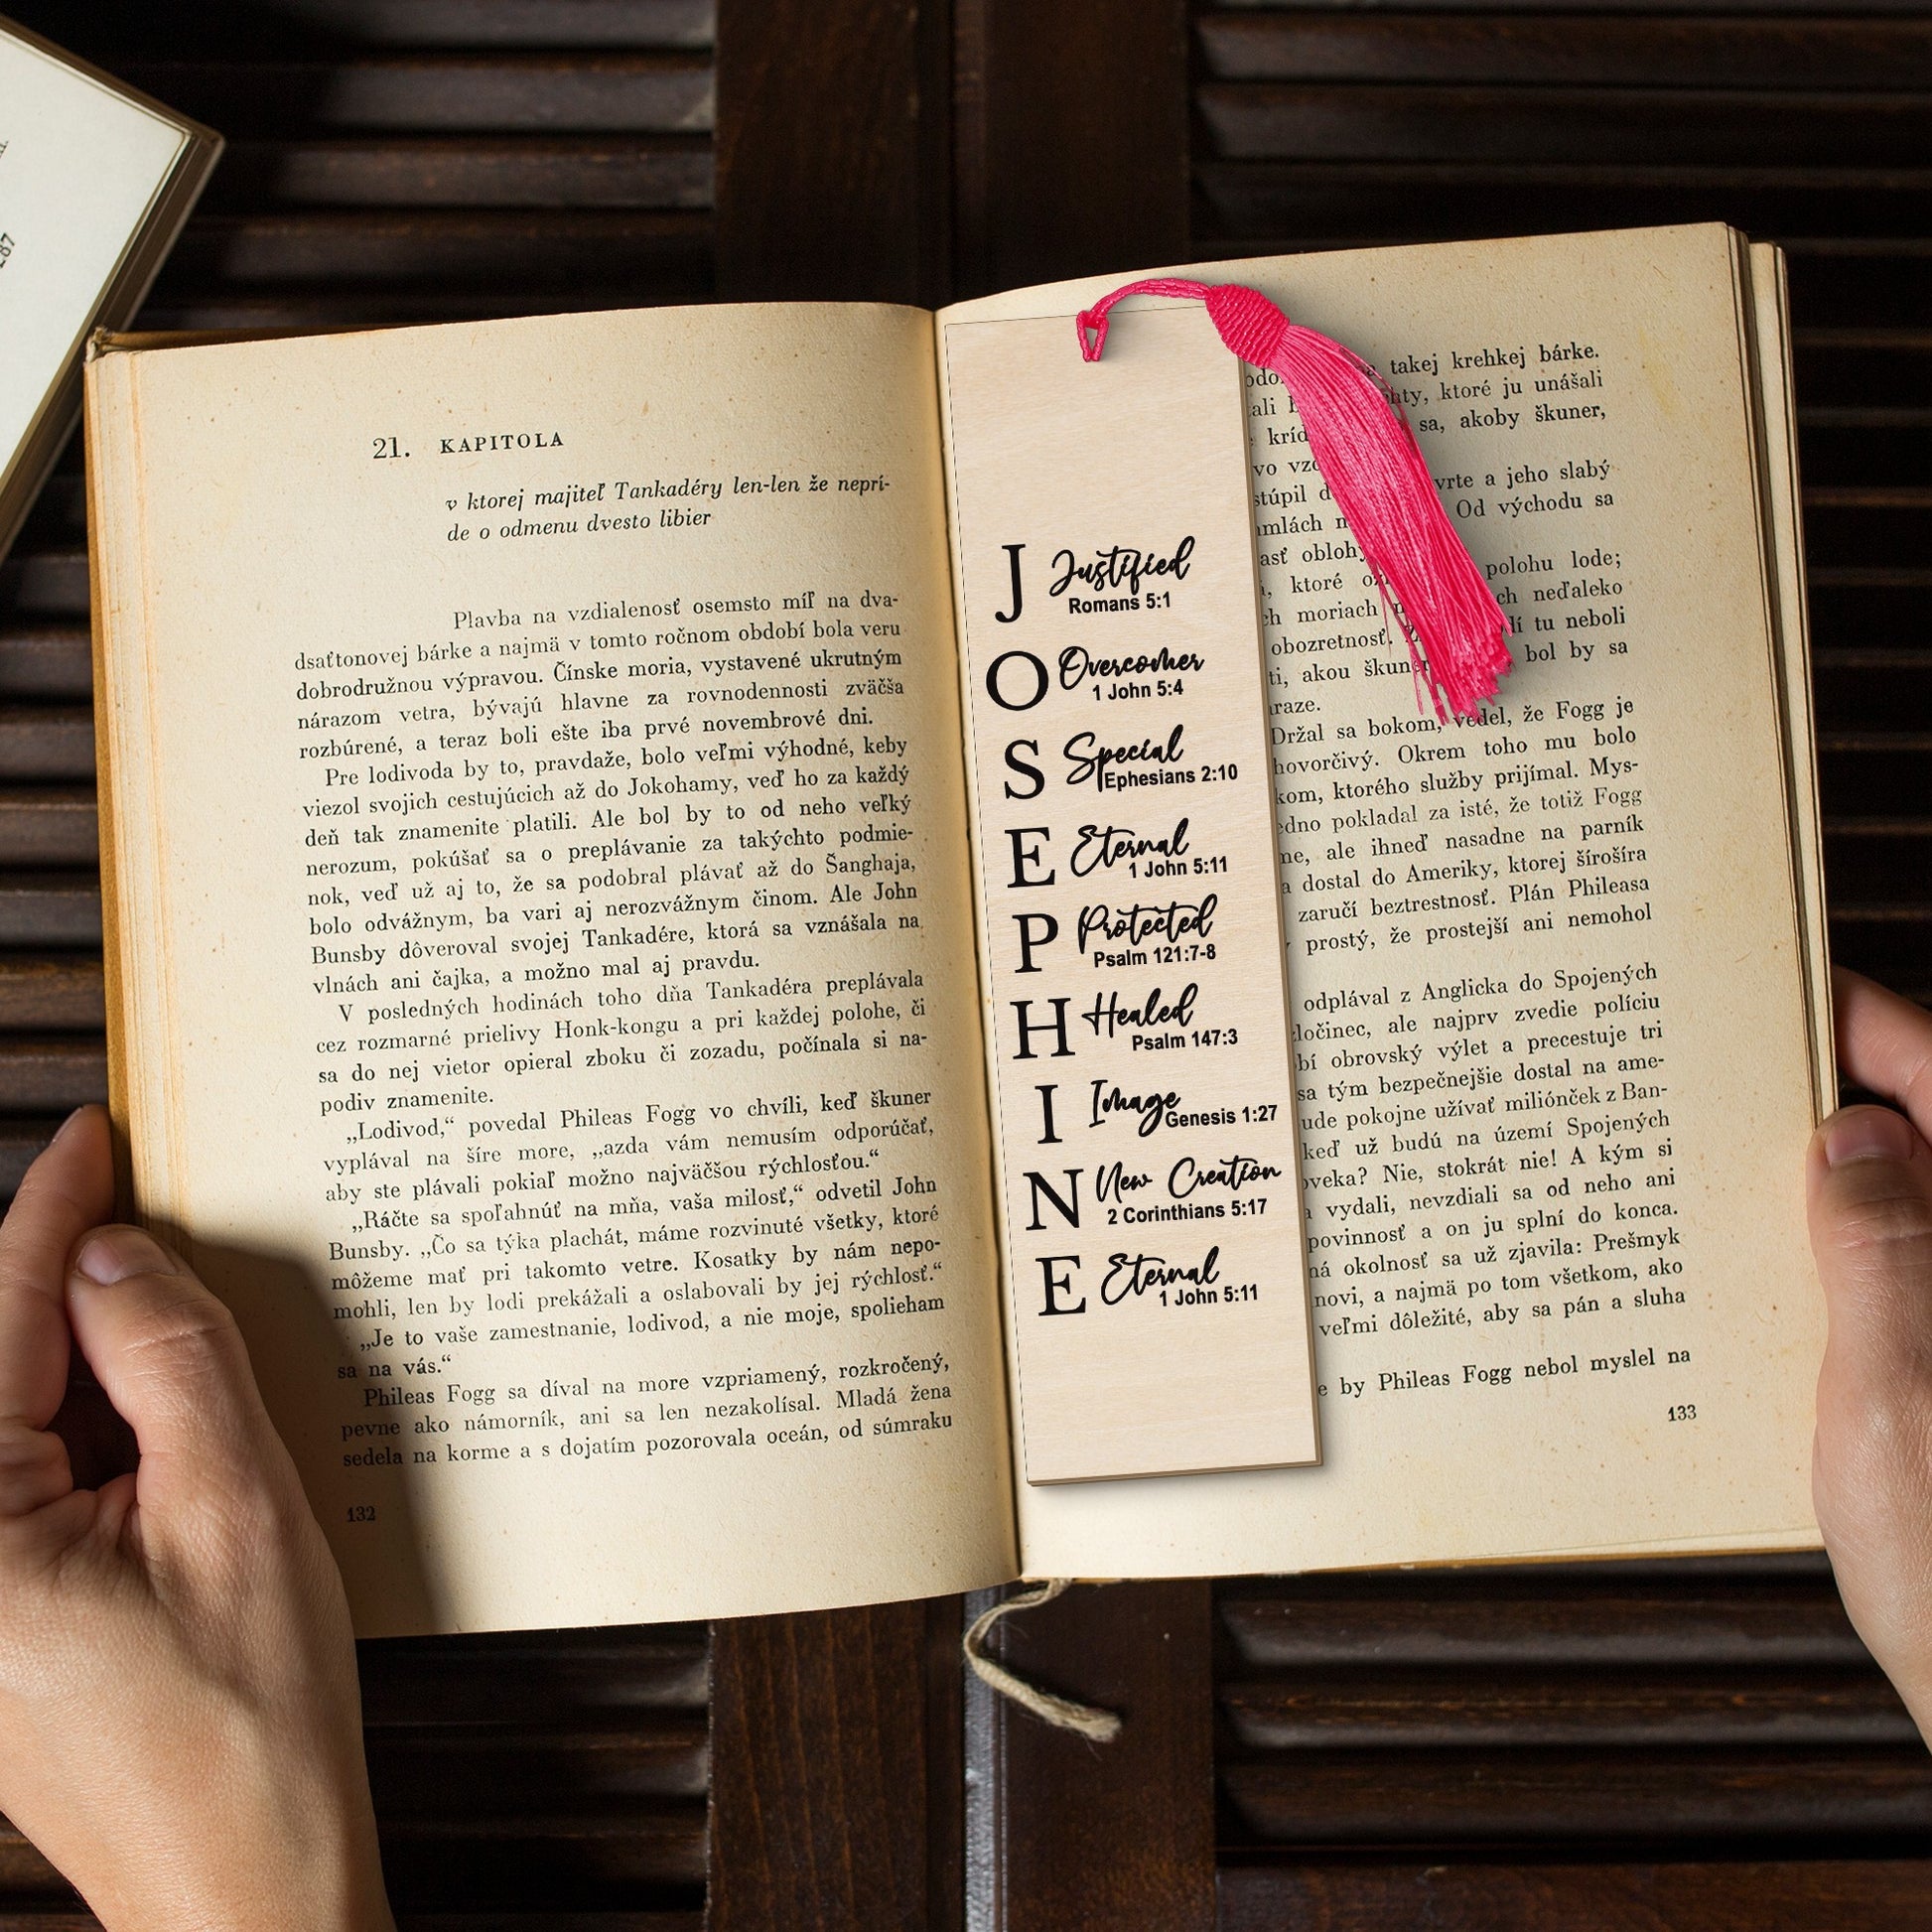 287
21. KAPITOLA
v ktorej majiteľ Tankadéry len-len že neprí-
de o odmenu dvesto libier
Plavba na vzdialenosť osemsto míľ na dva-
dsaťtonovej bárke a najmä v tomto ročnom období bola veru
dobrodružnou výpravou. Čínske moria, vystavené ukrutným
nárazom vetra, bývajú hlavne za rovnodennosti zväčša
rozbúrené, a teraz boli ešte iba prvé novembrové dni.
Pre lodivoda by to, pravdaže, bolo veľmi výhodné, keby
viezol svojich cestujúcich až do Jokohamy, veď ho za každý
deň tak znamenite platili. Ale bol by to od neho veľký
nerozum, pokúšať sa o preplávanie za takýchto podmie-
nok, veď už aj to, že sa podobral plávať až do Šanghaja,
bolo odvážnym, ba vari aj nerozvážnym činom. Ale John
Bunsby dôveroval svojej Tankadére, ktorá sa vznášala na
vlnách ani čajka, a možno mal aj pravdu.
V posledných hodinách toho dňa Tankadéra preplávala
cez rozmarné prielivy Honk-kongu a pri každej polohe, či
sa do nej vietor opieral zboku či zozadu, počínala si na-
podiv znamenite.
„Lodivod,“ povedal Phileas Fogg vo chvíli, keď škuner
vyplával na šíre more, „azda vám nemusím odporúčať,
aby ste plávali pokiaľ možno najväčšou rýchlosťou.“
„Ráčte sa spoľahnúť na mňa, vaša milosť,“ odvetil John
Bunsby. „Čo sa týka plachát, máme rozvinuté všetky, ktoré
môžeme mať pri takomto vetre. Kosatky by nám nepo-
mohli, len by lodi prekážali a oslabovali by jej rýchlosť.“
„Je to vaše zamestnanie, lodivod, a nie moje, spolieham
sa na vás.“
Phileas Fogg sa díval na more vzpriamený, rozkročený,
pevne ako námorník, ani sa len nezakolísal. Mladá žena
sedela na korme a s dojatím pozorovala oceán, od súmraku
132
J Justified
Romans 5:1
O Overcomer
1 John 5:4
S Special
Ephesians 2:10
E Eternal
1 John 5:11
P Protected
Psalm 121:7-8
H Healed
Psalm 147:3
I Image
Genesis 1:27
N New Creation
2 Corinthians 5:17
E Eternal
1 John 5:11
takej krehkej bárke.
ktoré ju unášali
sa, akoby škuner,
kríd
vo
vrte a jeho slabý
stúpil Od východu sa
oblohy
ktoré polohu lode;
moriach neďaleko
obozretnosť. tu neboli
akou bol by sa
Držal sa bokom, vedel, že Fogg je
hovorčivý. Okrem toho mu bolo
ktorého služby prijímal. Mys-
pokladal za isté, že totiž Fogg
ale ihneď nasadne na parník
dostal do Ameriky, ktorej šírošíra
zaručí beztrestnosť. Plán Phileasa
prostý, že prostejší ani nemohol
odplával z Anglicka do Spojených
ale najprv zvedie políciu
obrovský výlet a precestuje tri
sa tým bezpečnejšie dostal na ame-
pokojne užívať miliónček z Ban-
keď už budú na území Spojených
Nie, stokrát nie! A kým si
vydali, nevzdiali sa od neho ani
povinnosť a on ju splní do konca.
okolnosť sa už zjavila: Prešmyk
a najmä po tom všetkom, ako
veľmi dôležité, aby sa pán a sluha
by Phileas Fogg nebol myslel na
133